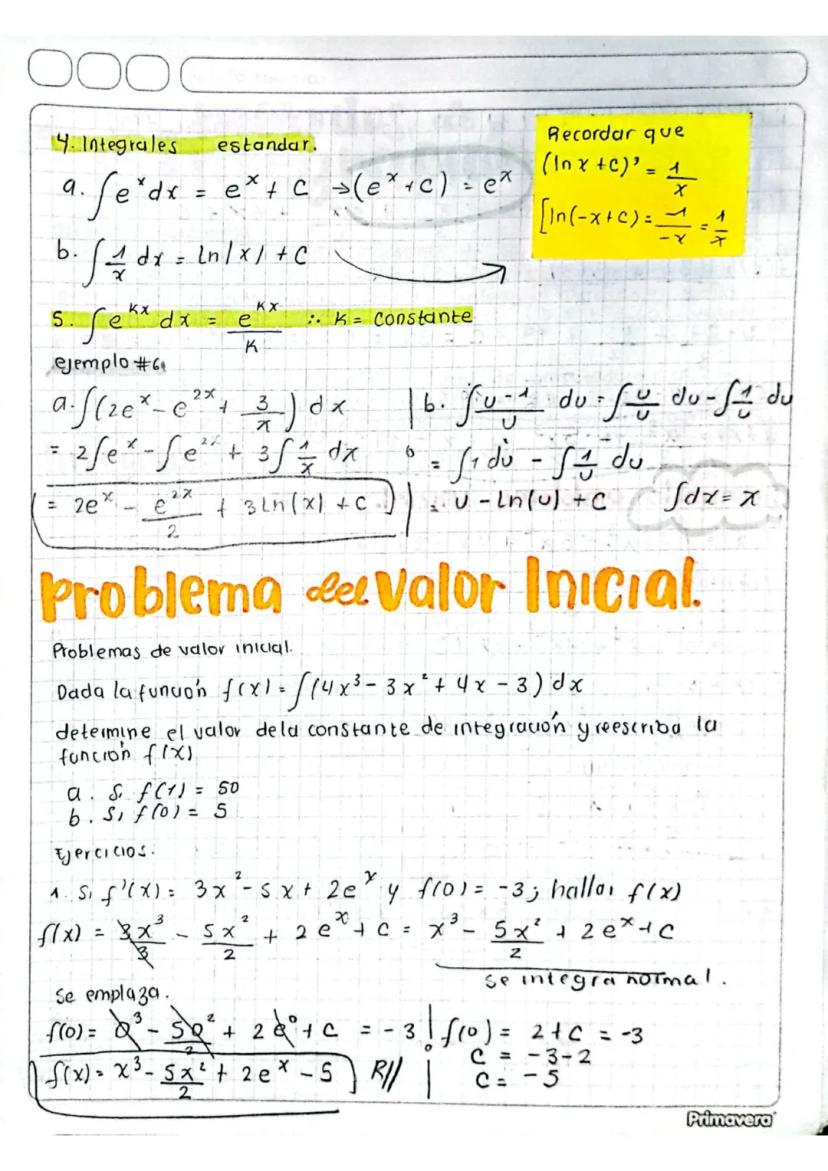 4. Integrales estandar.
a. ∫e^x dx = e^x + C → (e^x + c) = e^x
b. ∫ 1/x dx = Ln/x/ + C
Recordar que
(ln x + c)' = 1/x
[ln(-x+c) = -1/-x = 1/x
5. ∫e^kx dx = e^kx/K ∴ K = constante
ejemplo #6.
a. ∫(2e^x - e^2x + 3/x) dx
= 2∫e^x - ∫e^2x + 3∫ 1/x dx
= 2e^x - e^2x/2 + 3Ln(x) + C
b. ∫ u-1/u du = ∫ u/u du - ∫ 1/u du
= ∫1 du - ∫ 1/u du
= u - Ln(u) + C
∫dx = x
Problema del Valor Inicial.
Problemas de valor inicial.
Dada la función f(x) = ∫(4x³ - 3x² + 4x - 3) dx
determine el valor dela constante de integración y reescriba la
función f(x)
a. Si f(1) = 50
b. Si f(0) = 5
Ejercicios.
1. Si f'(x) = 3x² - 5x + 2e^x y f(0) = -3; hallar f(x)
f(x) = 3x³/3 - 5x²/2 + 2e^x + C = x³ - 5x²/2 + 2e^x + C
se integra normal.
Se emplaza.
f(0) = 0³ - 50²/2 + 2e⁰ + C = -3
f(0) = 2 + C = -3
C = -3-2
C = -5
f(x) = x³ - 5x²/2 + 2e^x - 5 R//
Primavera